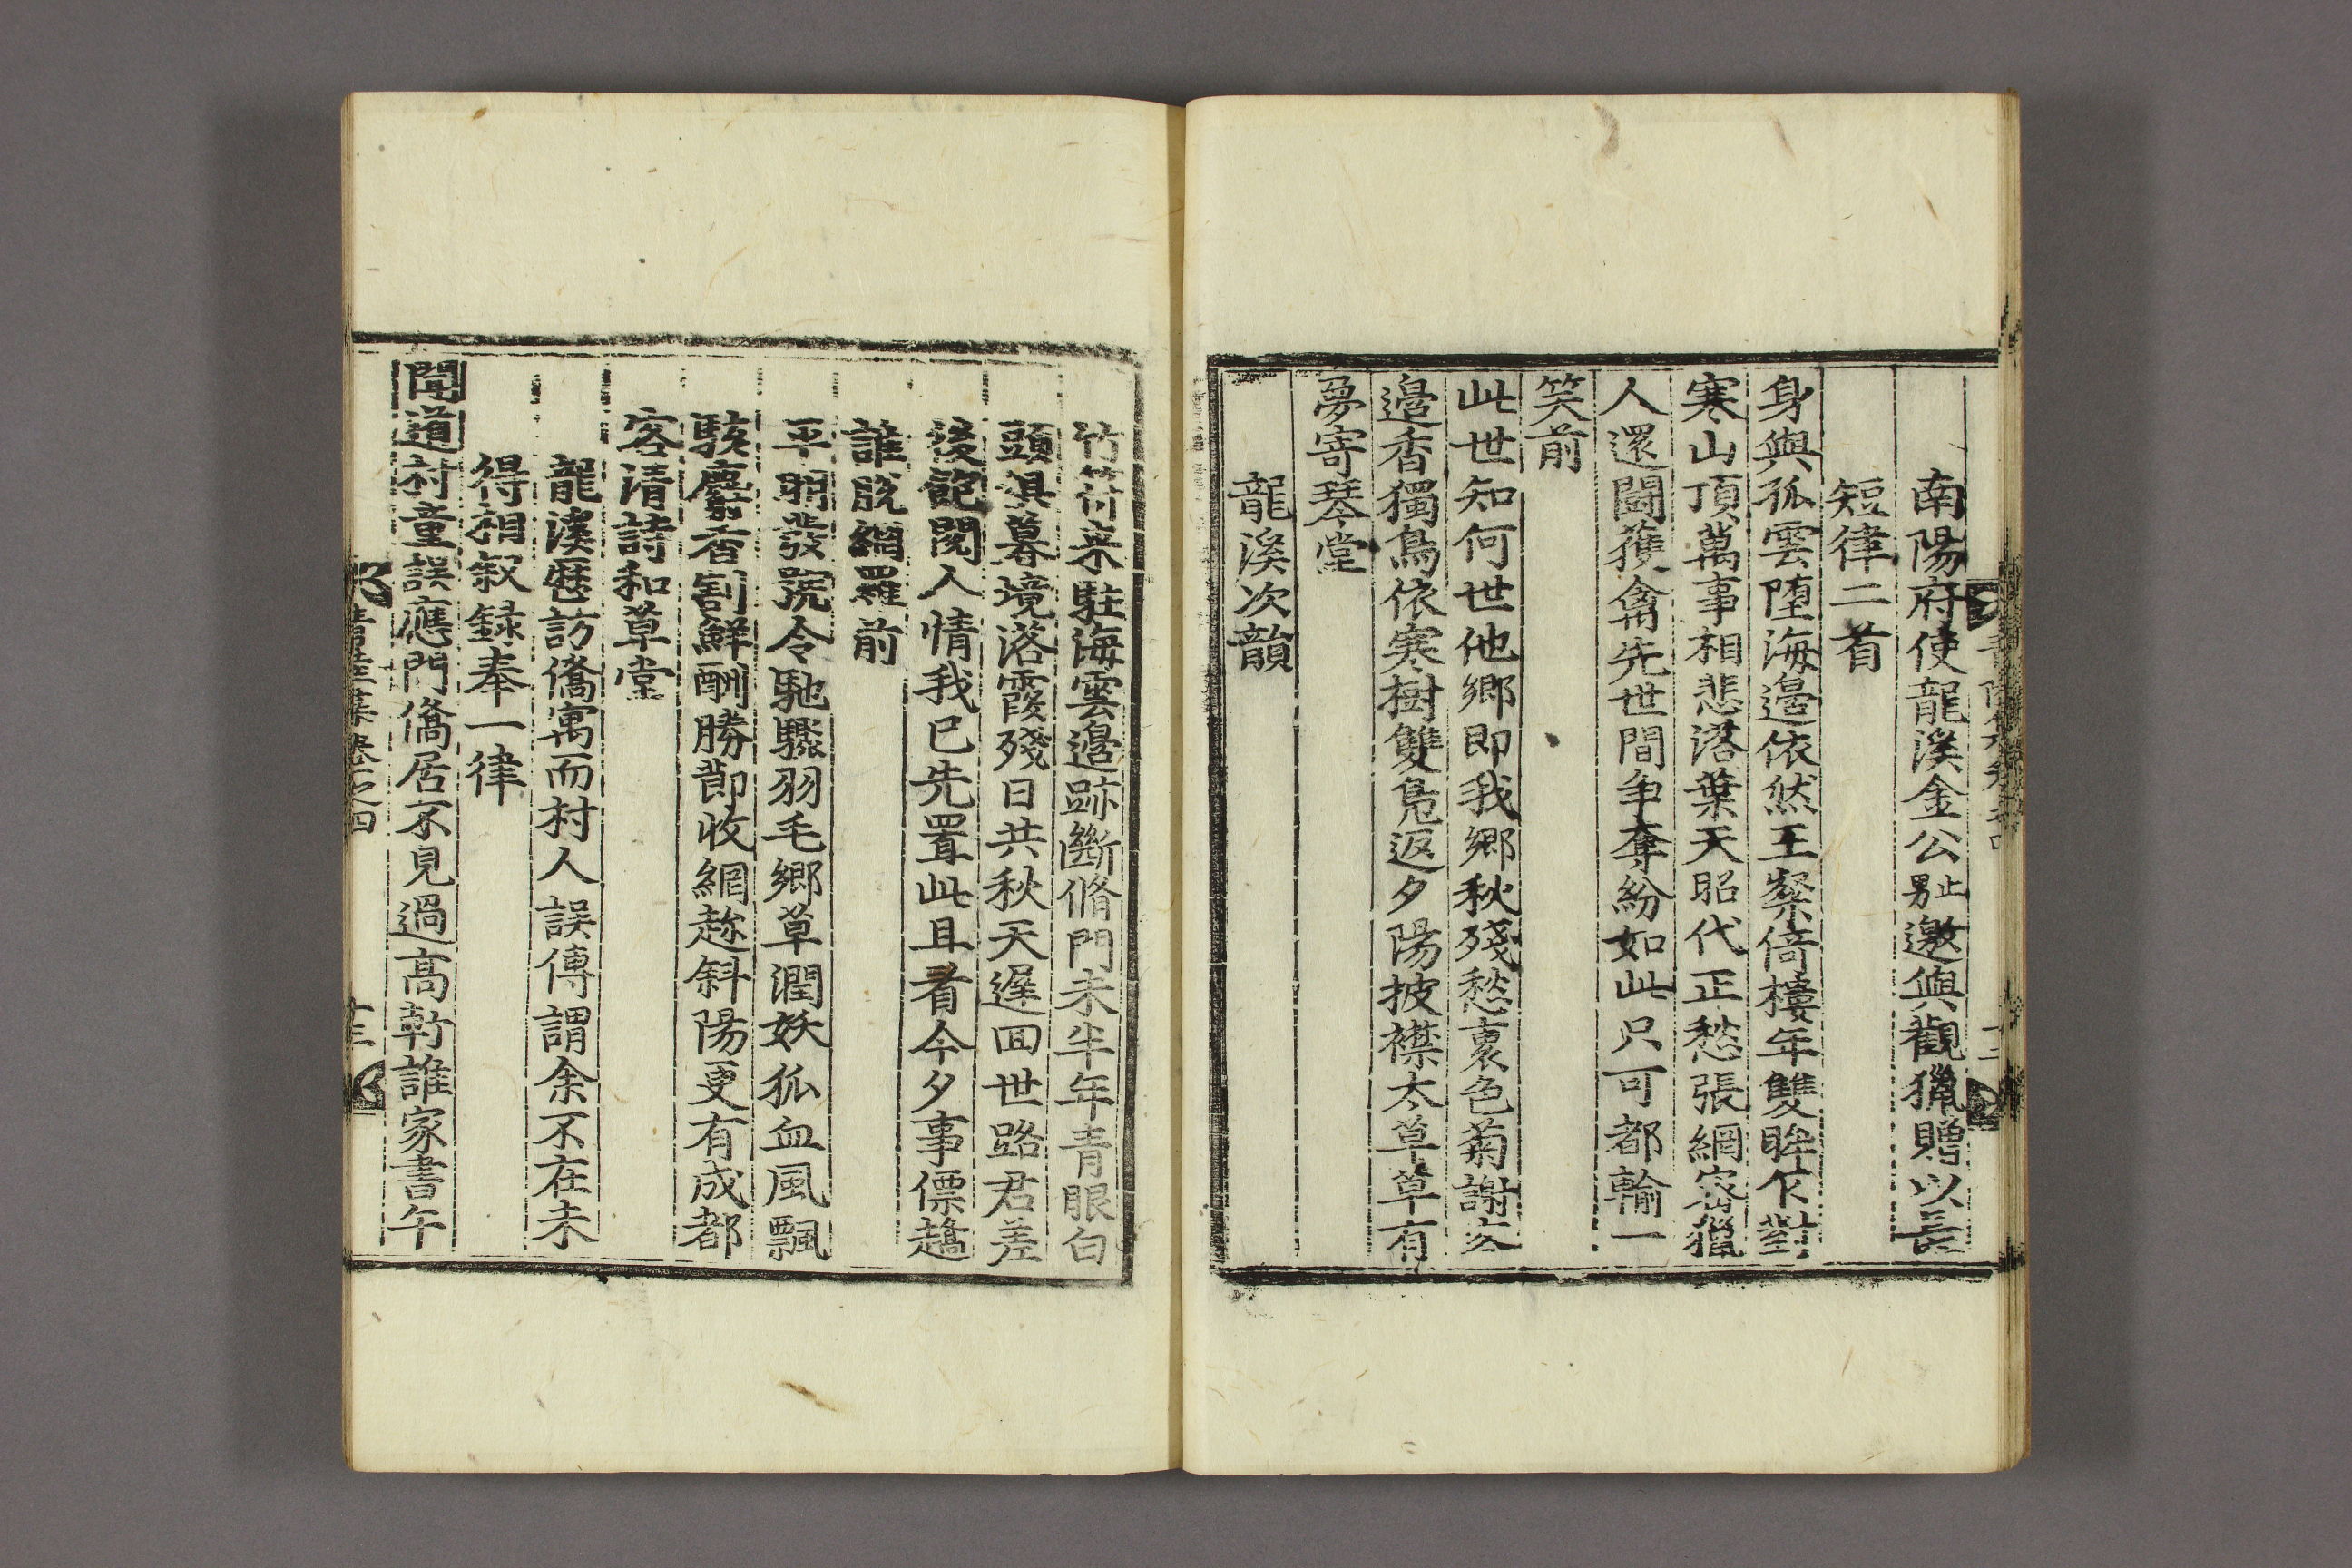 南陽府使龍溪金公止男邀與觀獵贈以長
短律二首
身與孤雲堕海邉依然王粲倚樓年雙眸乍對
寒山頂萬事相悲落葉天昭代正愁張網宻獵
人還鬪獲禽先世間爭奪紛如此只可都輸一
笑前
此世知何世他鄉即我鄉秋殘愁裏色菊謝客
邉香獨鳥依寒樹雙鳬返夕陽披襟太草草有
夣寄琴堂
龍溪次韻
竹符来駐海雲邉跡斷脩門未半年青眼白
頭俱暮境落霞殘日共秋天遲囬世路君差
後飽閱人情我已先置此且看今夕事僄趫
誰脫網羅前
平明發號令馳驟羽毛鄉草潤妖狐血風飄
駭麝香割鮮酬勝節收網趂斜陽更有成都
客清詩和草堂
龍溪歷訪僑寓而村人誤傳謂余不在未
得相叙録奉一律
聞道村童誤應門僑居不見過高軒誰家書午
青陸集卷之四
十三